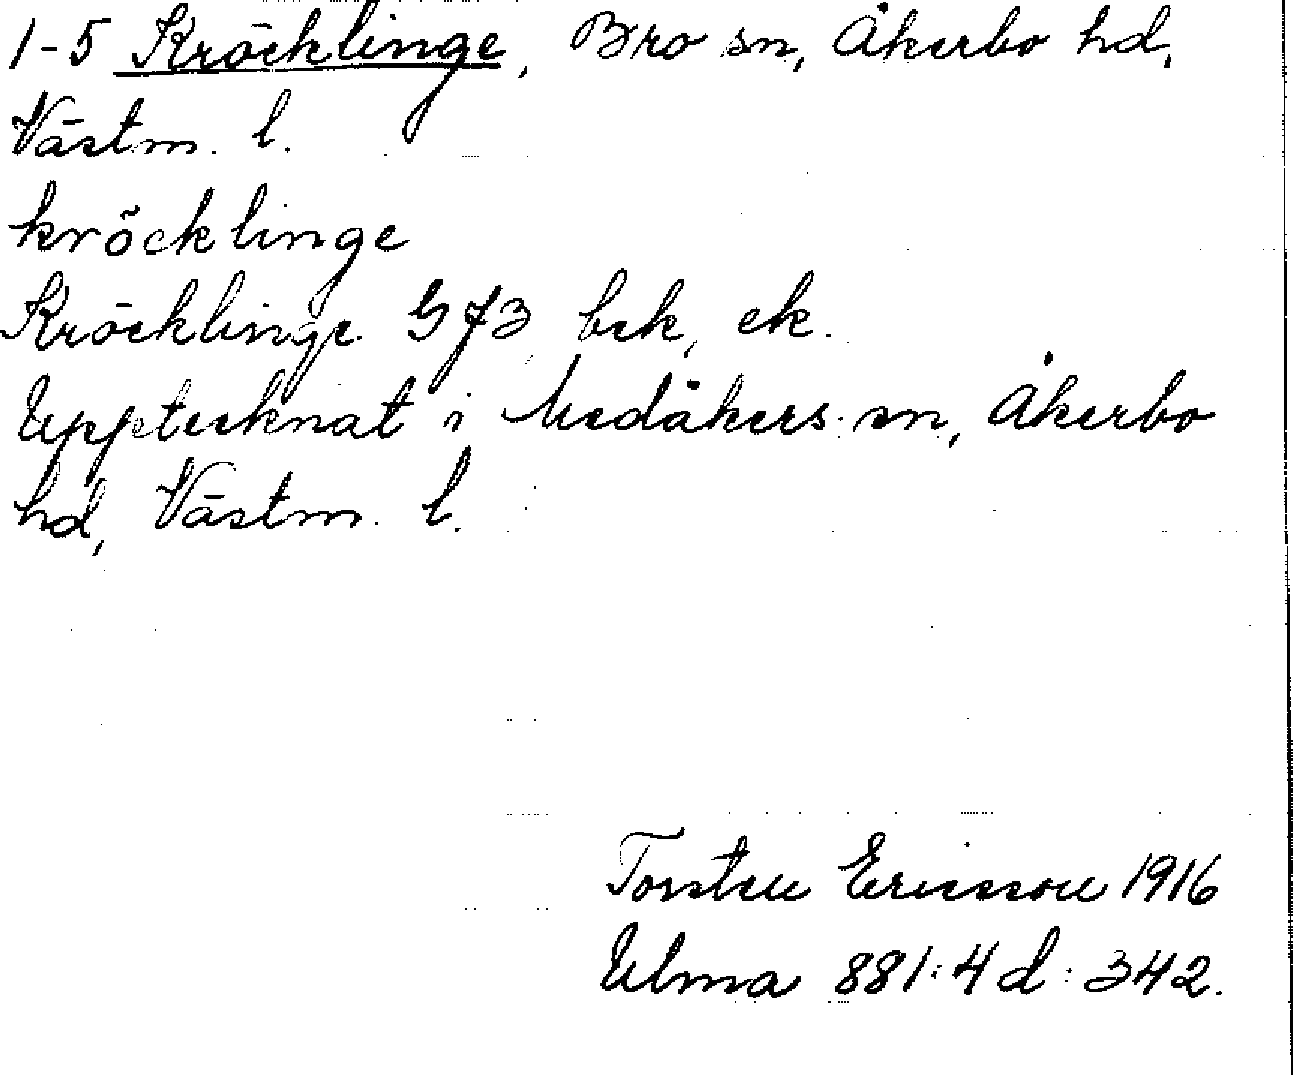 1-5 Kröcklinge, Bro sn, Åkerbo hd,
Västm. l.
kröcklinge
Kröcklinge G73, bek, ek.
Upptecknat i Medåkers sn, Åkerbo
hd, Västm. l.
Torsten Ericsson 1916
Ulma 881:4 d:342.